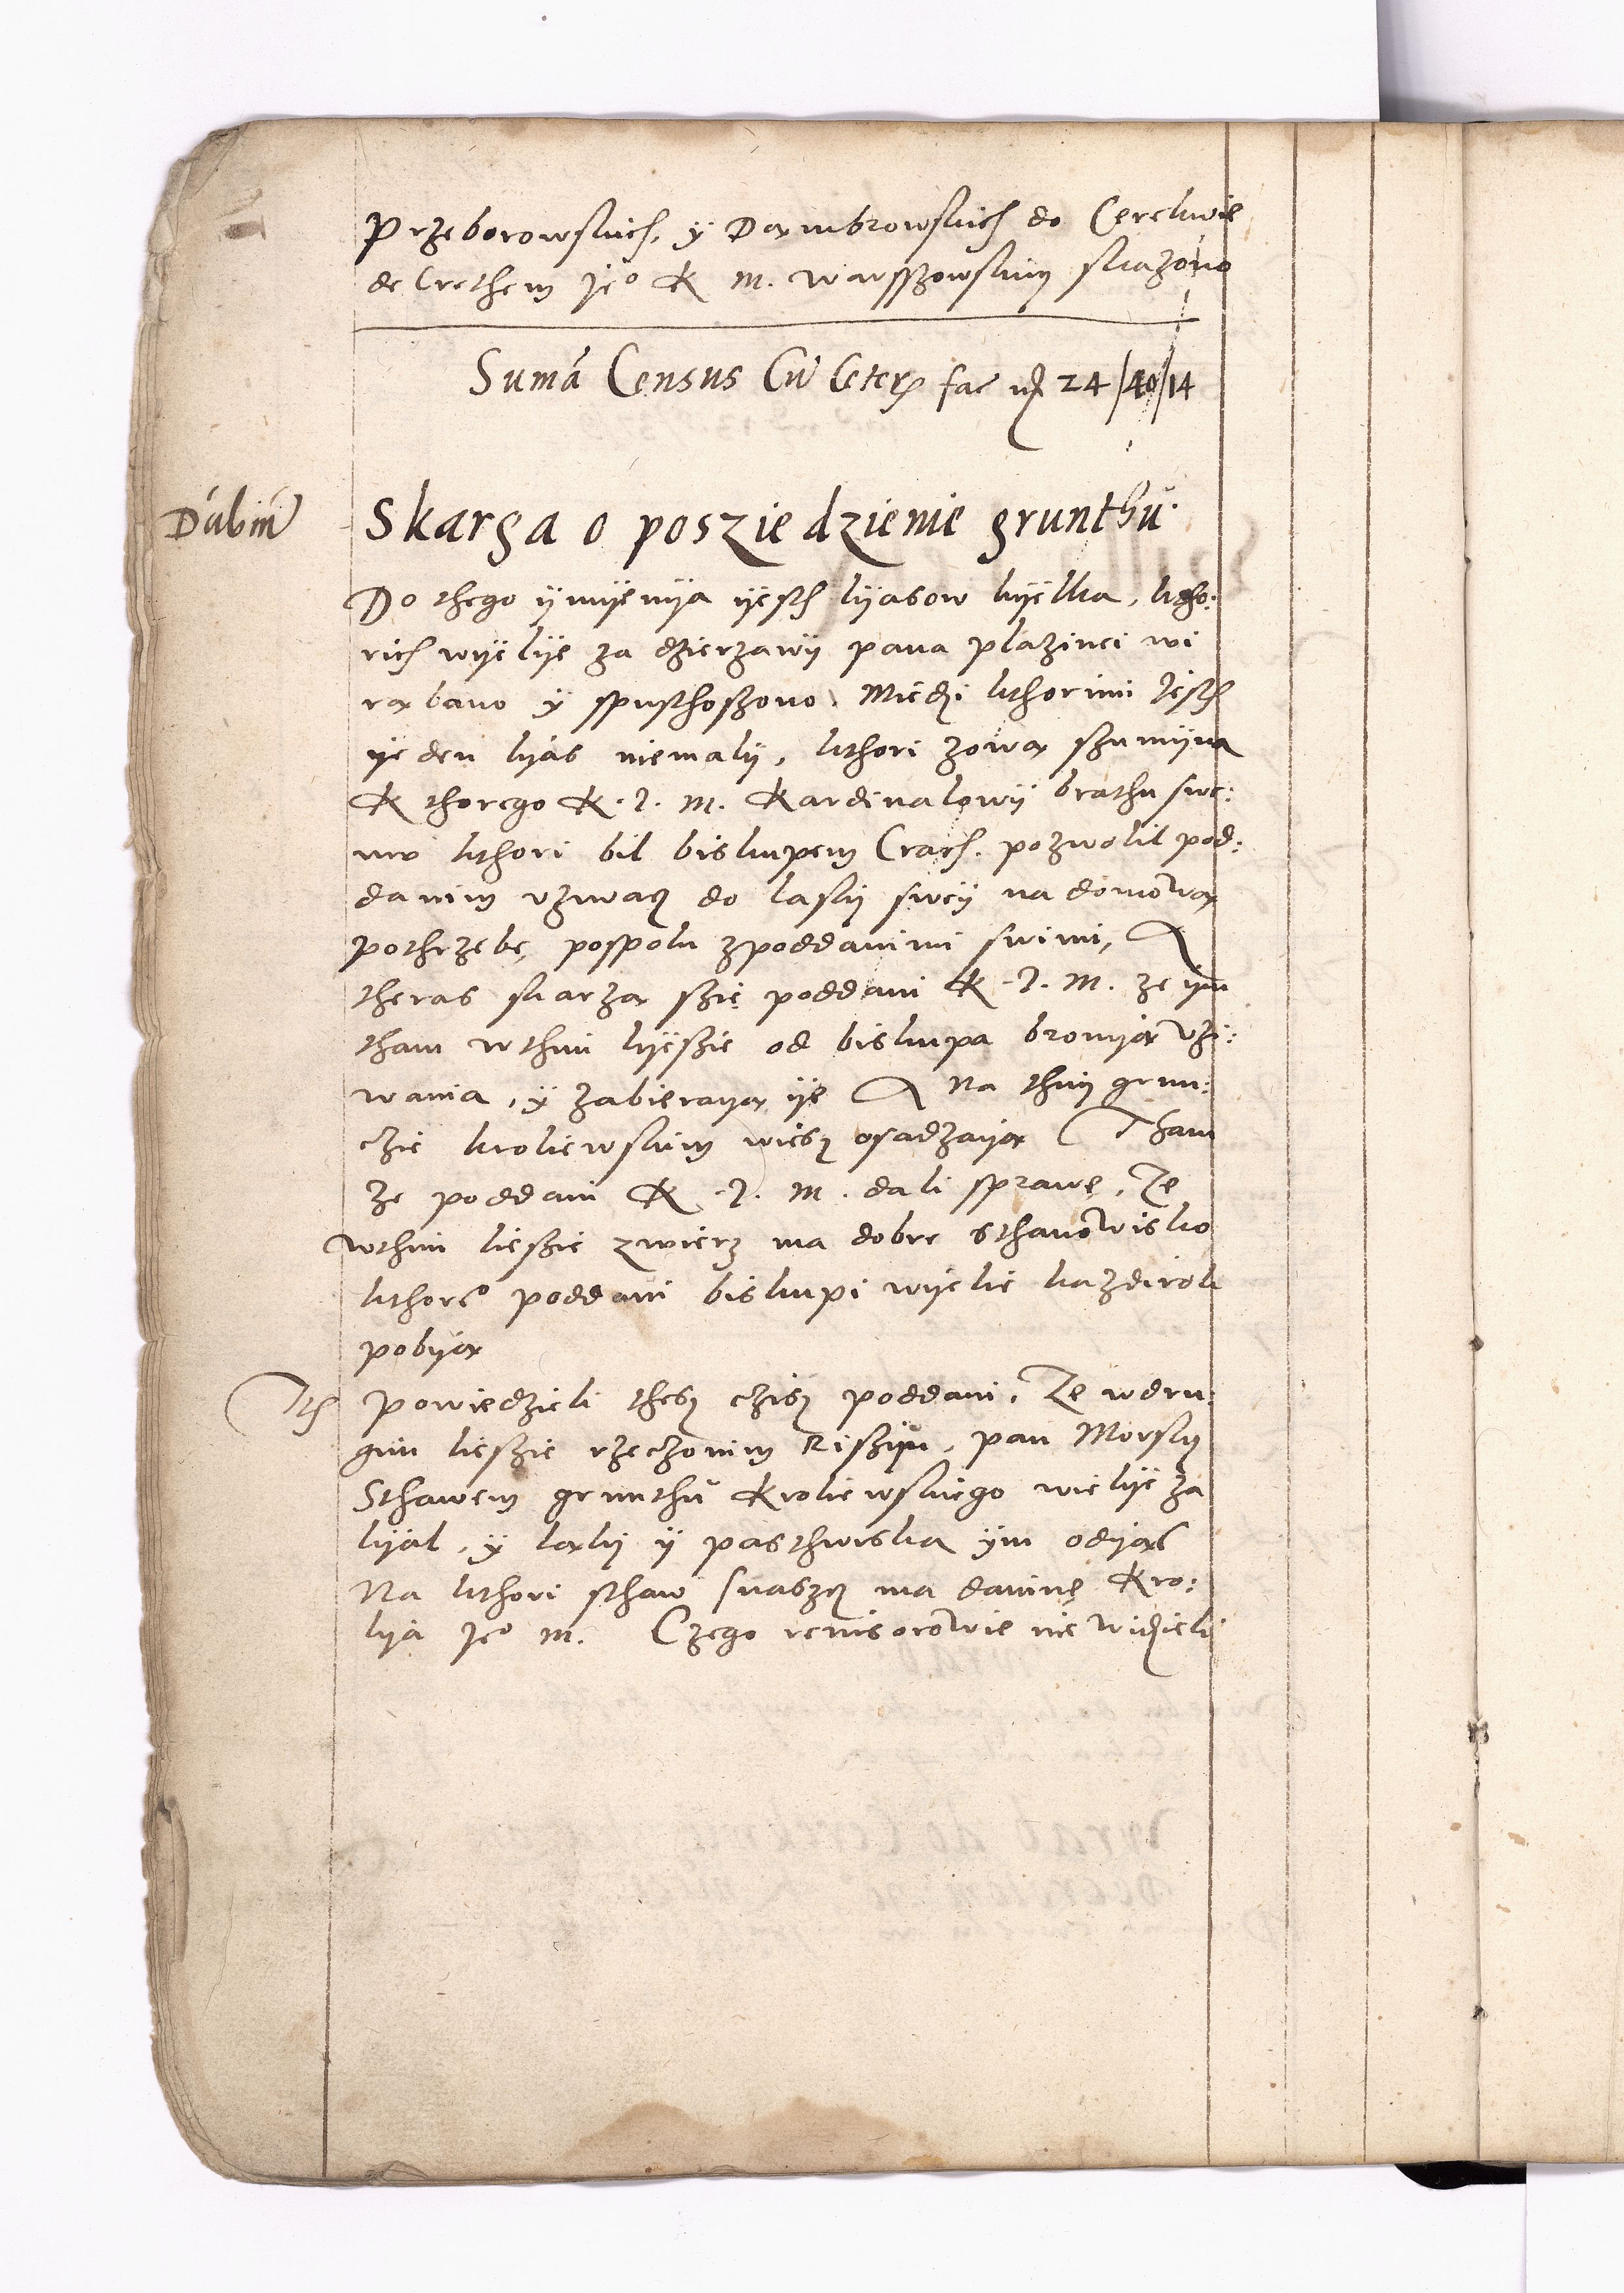 Przeborowskich, y Dambrowskich do Cerekwie
decrethem Je° K M. warszowskim skazono
Suma Census Cu Ceter fac 24/40/14
Dubin
Skarga o posziedzienie grunthu
Do thego ymyenya yesth lyasow kyelka, ktho:
rich wyelye za dzierzawy pana plazinci wi
rabano y spusthoszono. Miedzi kthorimi Jesth
yeden lyas niemaly, kthori zowa szumyna
Kthorego K. J. M. Kardinalowy brathu swe:
mu kthori bil biskupem Crac. pozwolil pod:
danim vziwacz do laski swey na domowa
pothrzebe, pospolu zpoddanimi swimi, A
theras skarza szie poddani K. J. M. ze ym
tham wthim lyeszie od biskupa bronya vzi:
wania, y zabieraya ye A Na thim grun:
czie kroliewskim wiesz osadzaya Tham
ze poddani K. J. M. dali sprawe, Ze
wthim lieszie zwierz ma dobre sthanowisko
kthore° poddani biskupi wyelie kazdi rok
pobija
Ith powiedzieli thesz czisz poddani, Ze wdru:
gim lieszie rzeczonim Riszyu, pan Morski
Sthawem grunthu Kroliewskiego wielye za
lyal, y laky y pasthwiska ym odyal
Na kthori sthaw snadz ma danine Kro:
lya Je° M. Czego revisorowie nie widzieli